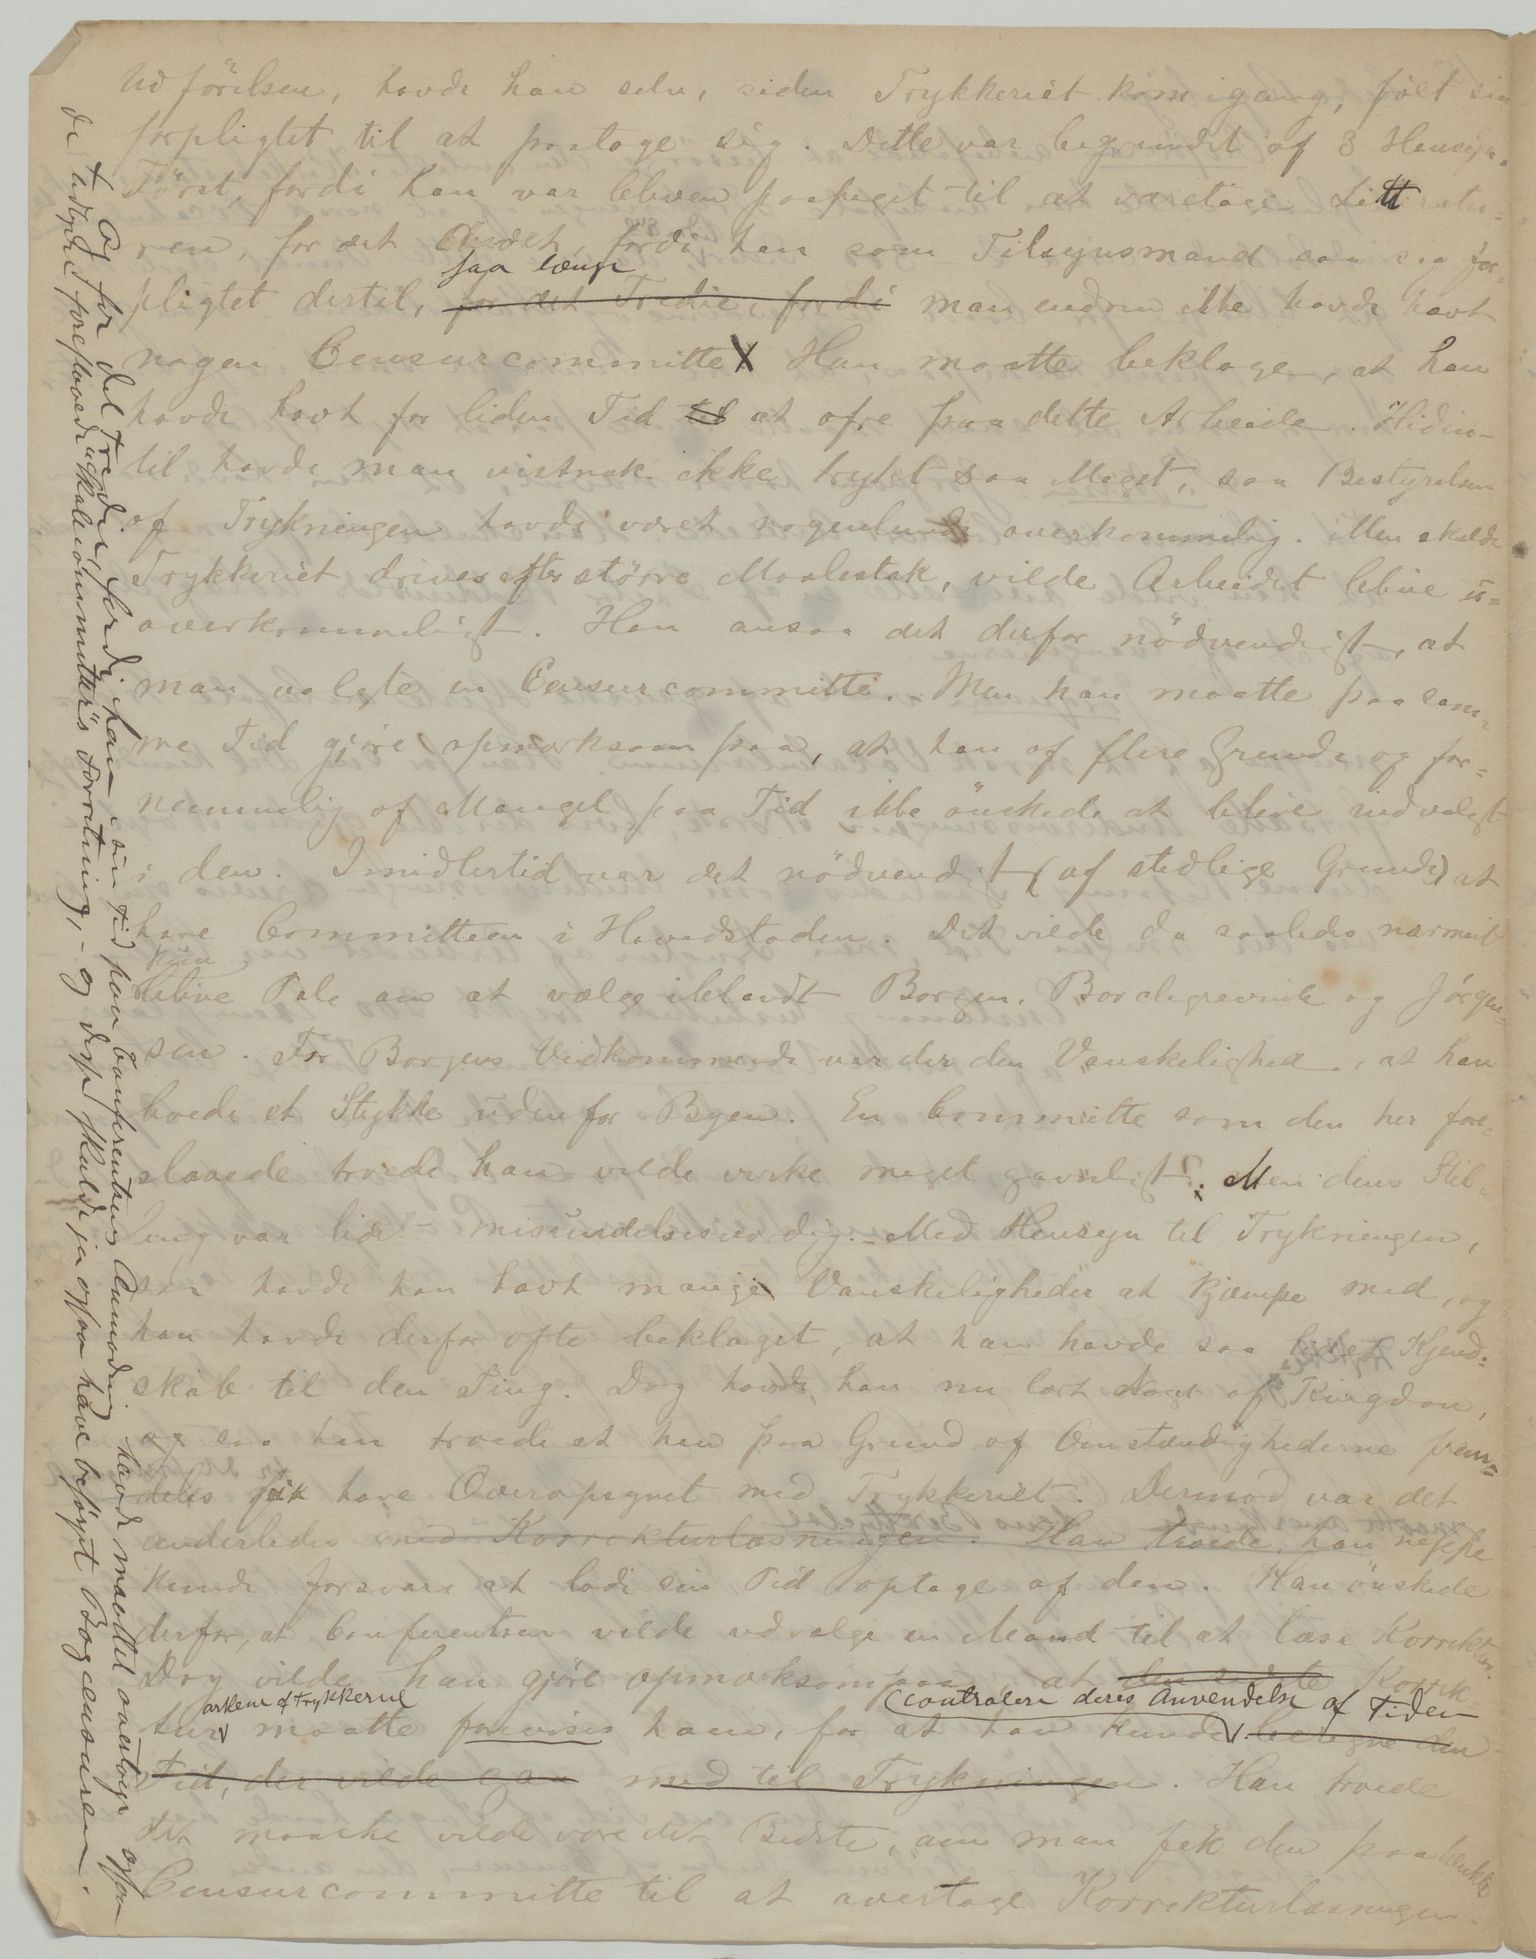 Udförelsen, havde han selv, siden Trykkeriet kom igang, fölt sig
forpligtet til at paatage sig. Dette var begrundet af 3 Hensyn.
Först, fordi han var bleven paalagt til at varetage Litteratu-
ren, for det Andet, fordi han som Tilsynsmand saa sig for-
saa længe
pligtet dertil, for det Tredie, fordi man endnu ikke havde havt
nogen Censurcommitte. Han maatte beklage, at han
havde havt for liden Tid til at ofre paa dette Arbeide. Hidin-
til havde man vistnok ikke trykt saa Meget, saa Bestyrelsen
af Trykningen havde været nogenlunde overkommelig. Men skulde
Trykkeriet drives efter större Maalestok, vilde Arbeidet blive u-
overkommeligt. Han ansaa det derfor nödvendigt, at
man valgte en Censurcommitte. Men han maatte paa sam-
me Tid gjöre opmærksom paa, at han af flere Grunde og for-
nemmelig af Mangel paa Tid ikke önskede at blive indvalgt
i den. Imidlertid var det nödvendigt (af stedlige Grunde) at
have Committeen i Hovedstaden. Det vilde da saaledes nærmest
kun
blive Tale om at vælge iblandt Borgen, Borchgrevink og Jörgen-
sen. For Borgens Vedkommende var der den Vanskelighed, at han
boede et Stykke udenfor Byen. En Committe som den her fore-
slaaede troede han vilde virke meget gavnligt; Men dens Stil-
ling var lidet misundelsesværdig. – Med Hensyn til Trykningen,
saa havde han havt mange Vanskeligheder at kjæmpe med, og
han havde derfor ofte beklaget, at han havde saa lidet Kjend-
skab til den Ting. Dog havde han nu lært Noget af Kingdon,
og saa han troede at han paa Grund af Omstændighederne frem-
deles fik have Overopsynet med Trykkeriet. Dermod var det
anderledes med Korrekturlæsningen. Han troede, han neppe
kunde forsvare at lade sin Tid optage af den. Han önskede
derfor, at Conferentsen vilde udvælge en Mand til at læse Korrektur.
Dog vilde han gjöre opmærksom paa, at den sidste Korrek-
arkene af Trykkerne
controlere deres Anvendelse af Tiden
tur maatte forevises ham, for at han kunde beregne den
Tid, der vilde gaa med til Trykningen. Han troede
det maaske vilde være det Bedste, om man fik den paatænkte
Censurcommitte til at overtage Korrekturlæsningen.
og for det Tredie, fordi han i sin Tid paa Conferentsens Anmodning havde maattet overtage ogsaa
de tidligere foreslaaede Skolecommittee's Forretning, – og disse skulde jo ogsaa have besörget Bogcensuren.